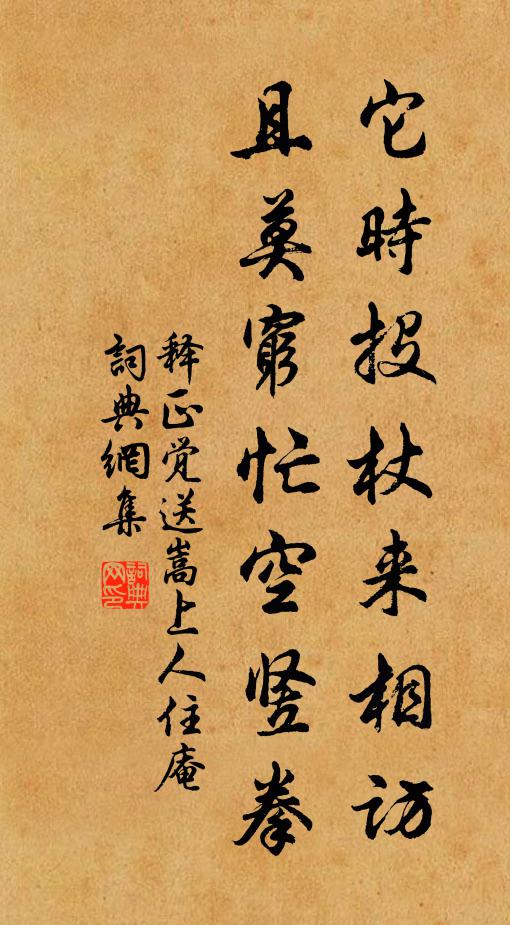 它時投杖来相訪
且莫窮忙空竖拳
释正觉送嵩上人住庵
詞典網集
詞典网印